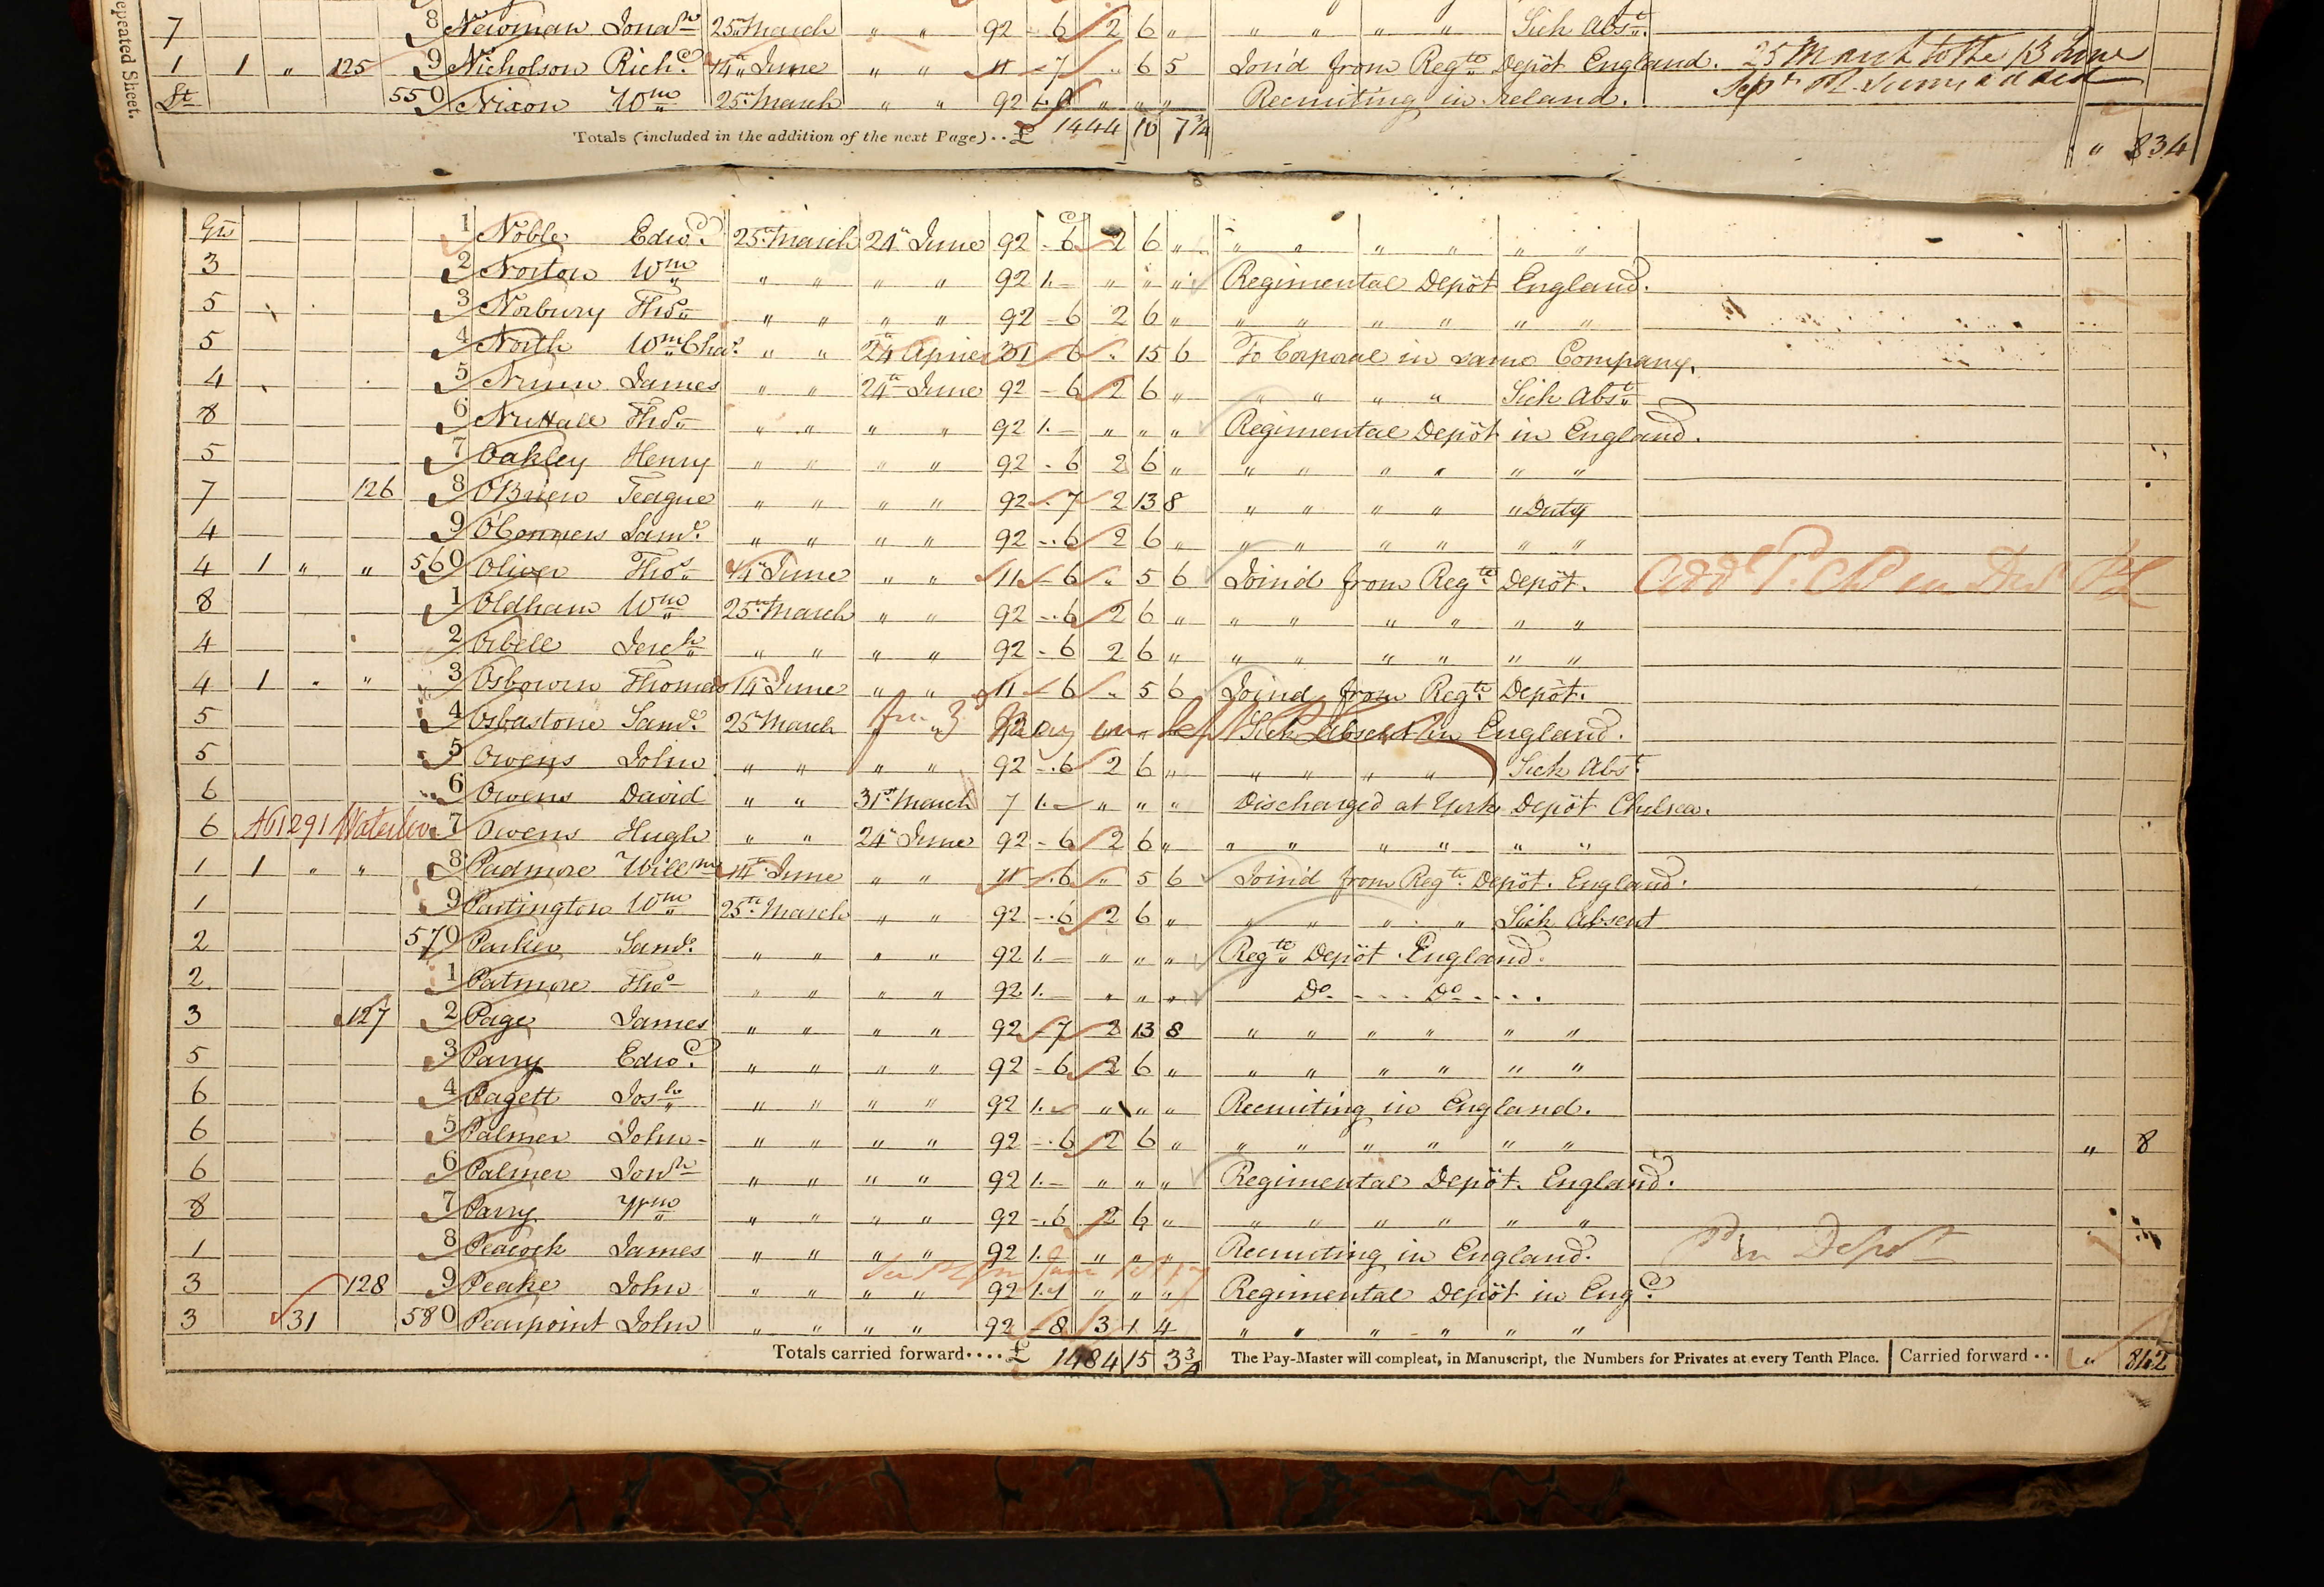 epeated Sheet.
7 8 Newman Jonan 25th March " " 92 - 6 2 6 " " " " " Sick Abst.
1 1 " 125 9 Nicholson Richd. 14th June " " 11 - 7 " 6 5 Join'd from Regtl. Depôt England. 25 March to the 13 June
St 550 Nixon Wm 25th March " " 92 1. " " " Recruiting in Ireland.
Totals (included in the addition of the next Page) . . £ 1444 10 7¾ " 834
Gr 1 Noble Edwd. 25th March 24th June 92 - 6 2 6 " " " " " " "
3 2 Norton Wm " " " " 92 1. - " " " Regimental Depôt England.
5 3 Norbury Thos. " " " " 92 - 6 2 6 " " " " " " "
5 4 North Wm Chas. " " 24th April 31 - 6 " 15 6 To Corporal in same Company.
4 5 Nunn James " " 24th June 92 - 6 2 6 " " " " " Sick Abst.
8 6 Nuttall Thos. " " " " 92 1. - " " " Regimental Depôt in England.
5 7 Oakley Henry " " " " 92 - 6 2 6 " " " " " " "
7 126 8 O'Brien Teague " " " " 92 - 7 2 13 8 " " " " " Duty
4 9 O'Conners Saml. " " " " 92 - 6 2 6 " " " " " " "
4 1 " " 560 Oliver Thos. 14th June " " 11 - 6 " 5 6 Join'd from Regtl. Depôt.
8 1 Oldham Wm 25th March " " 92 - 6 2 6 " " " " " " "
4 2 Orbell Jerch. " " " " 92 - 6 2 6 " " " " " " "
4 1 " " 3 Osbourn Thomas 14th June " " 11 - 6 " 5 6 Joind from Regtl. Depôt.
5 4 Osbastone Saml. 25th March " " 92 Sick Absent in England.
5 5 Owens John " " " " 92 - 6 2 6 " " " " " Sick Abst.
6 6 Owens David " " 31st March 7 1. - " " " Discharged at York Depôt Chelsea.
6 A61291 Waterloo 7 Owens Hugh " " 24th June 92 - 6 2 6 " " " " " " "
1 1 " " 8 Padmore Willm. 14th June " " 11 - 6 " 5 6 Join'd from Regtl. Depôt. England.
1 9 Partington Wm 25th March " " 92 - 6 2 6 " " " " " Sick Absent
2 570 Parker Saml. " " " " 92 1. - " " " Regtl. Depôt England.
2 1 Patmore Thos " " " " 92 1. - " " " Do - - - Do - - - .
3 127 2 Page James " " " " 92 - 7 2 13 8 " " " " " "
5 3 Parry Edwd. " " " " 92 - 6 2 6 " " " " " " "
6 4 Pagett Josh. " " " " 92 1. - " " " Recruiting in England.
6 5 Palmer John - " " " " 92 - 6 2 6 " " " " " " " " 8
6 6 Palmer Jonh " " " " 92 1. - " " " Regimental Depôt. England.
8 7 Parry Wm " " " " 92 - 6 2 6 " " " " " " "
1 8 Peacock James " " " " 92 1. " " " Recruiting in England. in Depot
3 128 9 Peake John " " " " 92 1. 1 " " " Regimental Depôt in Engd.
3 31 580 Pearpoint John " " " " 92 - 8 3 1 4 " " " " " "
Totals carried forward . . . . £ 1484 15 3¾ The Pay-Master will compleat, in Manuscript, the Numbers for Privates at every Tenth Place. Carried forward . . " 842